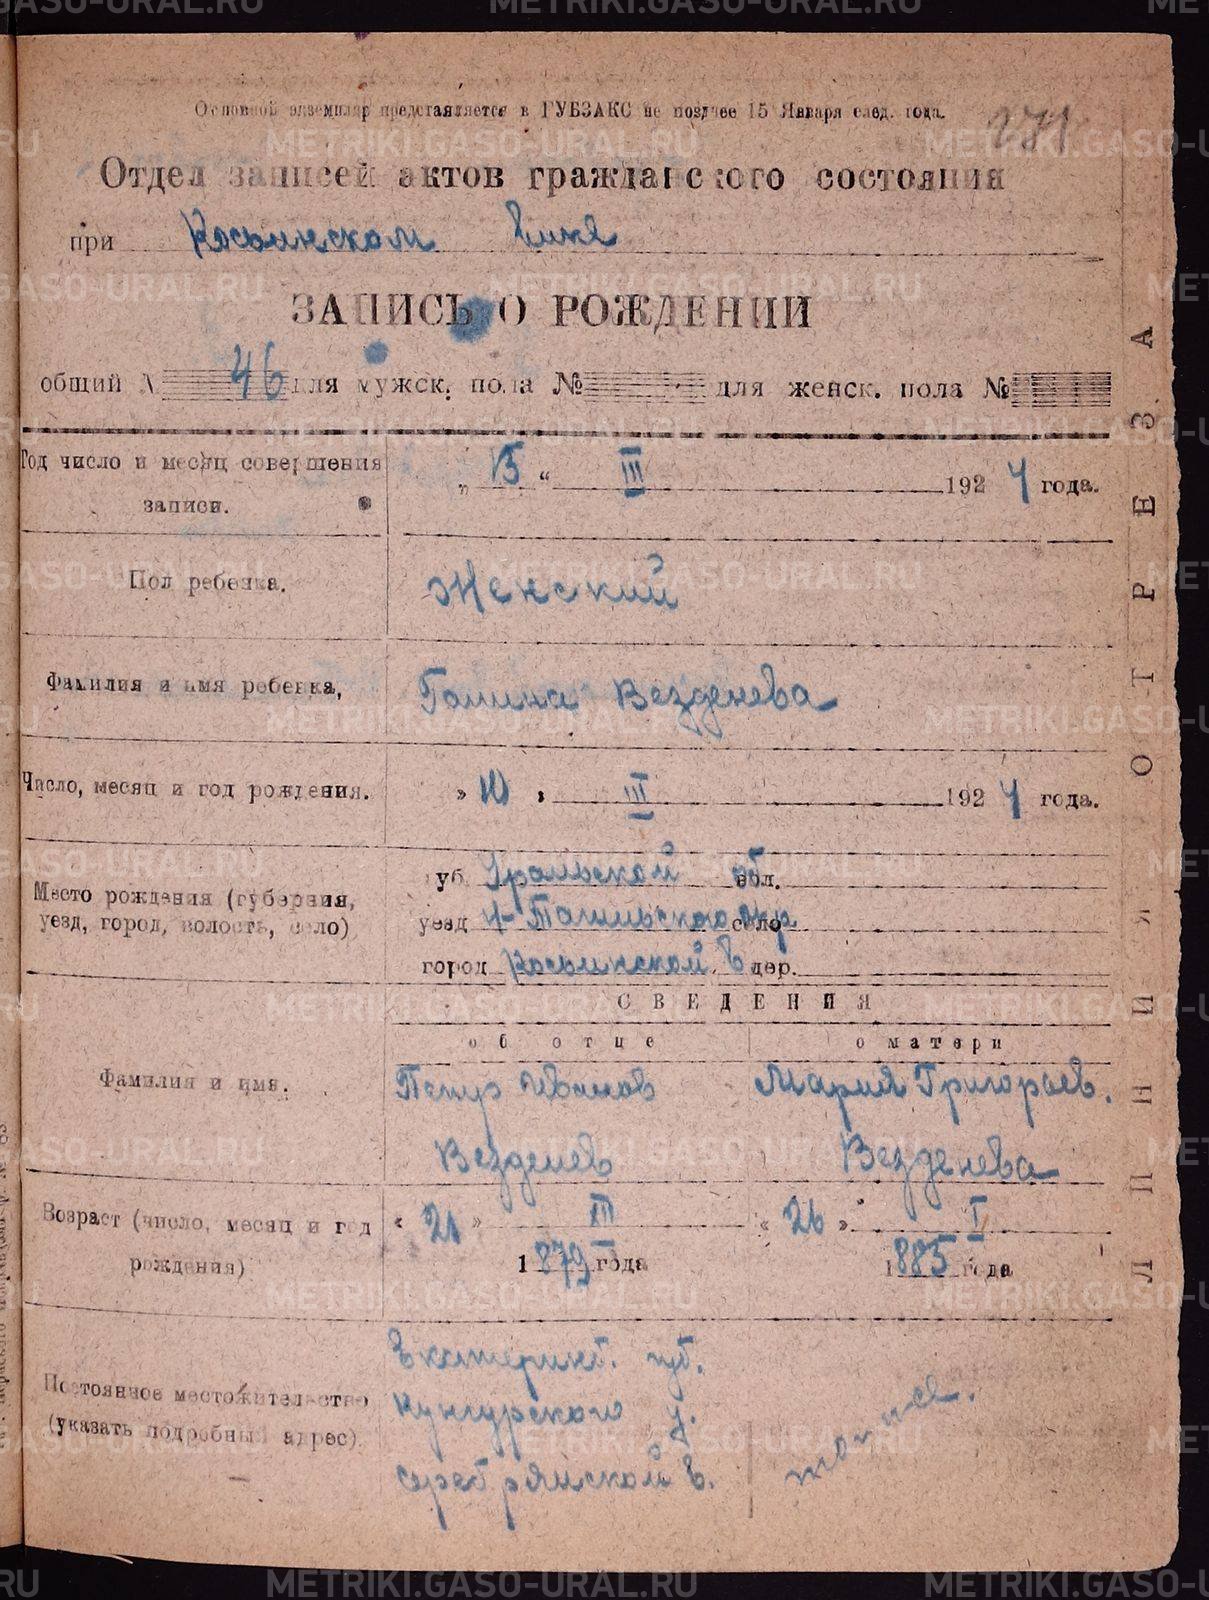 Основной экземпляр представляется в ГУБЗАКС не позднее 15 Января след. года.
271
Отдел записей актов гражданского состояния
при
ЗАПИСЬ О РОЖДЕНИИ
общий № 46 для мужск. пола № для женск. пола №
Год число и месяц совершения записи.
„ 15 “ III 1924 года.
Пол ребенка.
Женский
Фамилия и имя ребенка,
Галина Везденева
Число, месяц и год рождения.
» 10 „ III 1924 года.
Место рождения (губерния,
уезд, город, волость, село)
губ. Уральской обл.
уезд Н-Тагильского окр село
город Косьинской в дер.
СВЕДЕНИЯ
об отце
о матери
Фамилия и имя.
Петр Иванов
Везденев
Мария Григорьев.
Везденева
Возраст (число, месяц и год
рождения)
« 21 » XII
1879 года
« 26 » I
1885 года
Постоянное местожительство
(указать подробный адрес).
Екатеринб. губ.
Кунгурского у.
Серебрянской в.
та же.
ЛИНИЯ ОТРЕЗА
METRIKI.GASO-URAL.RU